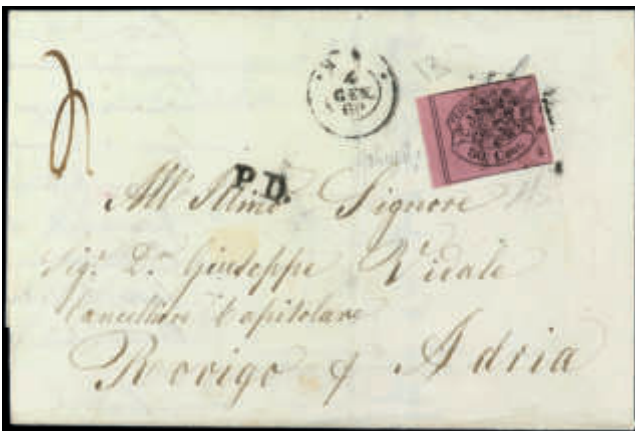 4
GEN
P.D.
All' Illmo Signore
Sigr. Dr. Giuseppe Vidale
Cancelliere Capitolare
Rovigo p Adria